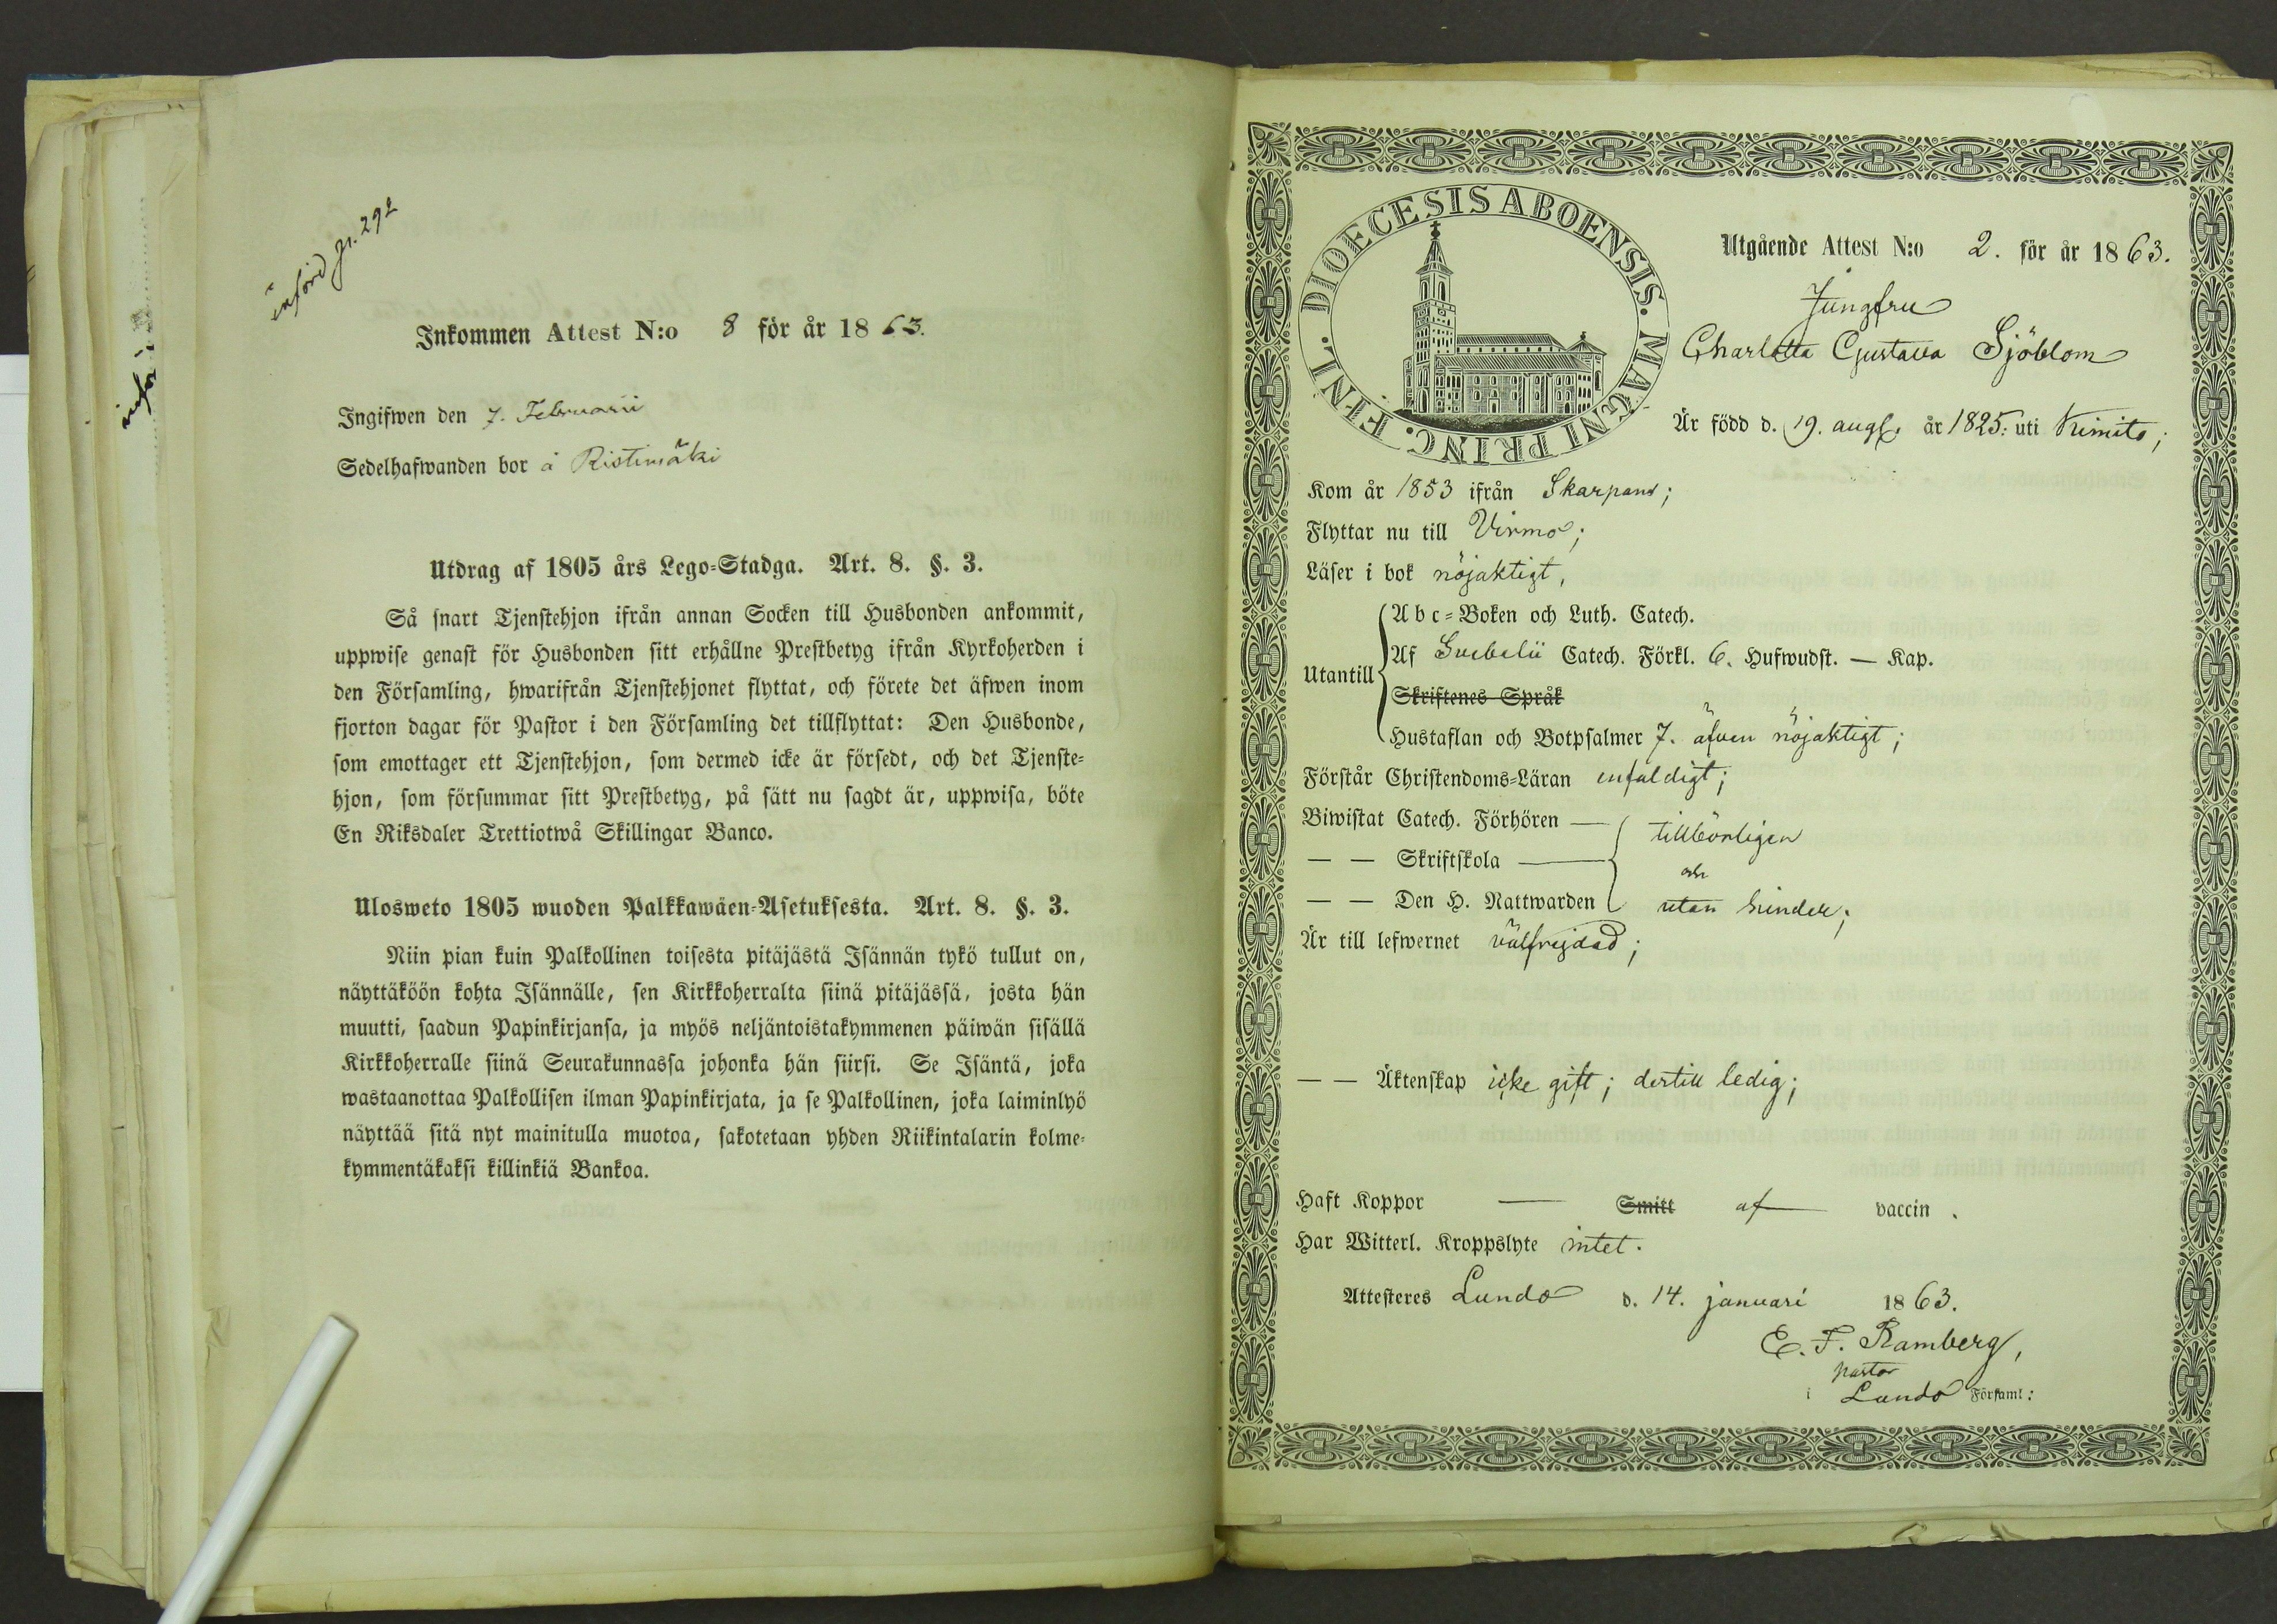 införd p. 292
inför
Inkommen Attest N:o 8 för år 1863.
Ingifwen den 7. Februarii
Sedelhafwanden bor å Ristimäki
Utdrag af 1805 års Lego-Stadga. Art. 8. §. 3.
Så snart Tjenstehjon ifrån annan Socken till Husbonden ankommit,
uppwise genast för Husbonden sitt erhållne Prestbetyg ifrån Kyrkoherden i
den Församling, hwarifrån Tjenstehjonet flyttat, och förete det äfwen inom
fjorton dagar för Pastor i den Församling det tillflyttat: Den Husbonde,
som emottager ett Tjenstehjon, som dermed icke är försedt, och det Tjenste-
hjon, som försummar sitt Prestbetyg, på sätt nu sagdt är, uppwisa, böte
En Riksdaler Trettiotwå Skillingar Banco.
Ulosweto 1805 wuoden Palkkawäen-Asetuksesta. Art. 8. §. 3.
Niin pian kuin Palkollinen toisesta pitäjästä Isännän tykö tullut on,
näyttäköön kohta Isännälle, sen Kirkkoherralta siinä pitäjässä, josta hän
muutti, saadun Papinkirjansa, ja myös neljäntoistakymmenen päiwän sisällä
Kirkkoherralle siinä Seurakunnassa johonka hän siirsi. Se Isäntä, joka
wastaanottaa Palkollisen ilman Papinkirjata, ja se Palkollinen, joka laiminlyö
näyttää sitä nyt mainitulla muotoa, sakotetaan yhden Riikintalarin kolme-
kymmentäkaksi killinkiä Bankoa.
DIOECESIS ABOENSIS. MAGNI PRINC. FINL.
Utgående Attest N:o 2. för år 1863.
Jungfru
Charlotta Gustava Sjöblom
Är född d. 19. aug. år 1825: uti Kimito;
Kom år 1853 ifrån Skarpans;
Flyttar nu till Virmo;
Läser i bok nöjaktigt,
Utantill
Abc-Boken och Luth. Catech.
Af Svebelii Catech. Förkl. 6. Hufwudst. — Kap.
Skriftenes Språk
Hustaflan och Botpsalmer 7. äfven nöjaktigt;
Förstår Christendoms-Läran enfaldigt;
Biwistat Catech. Förhören — tillbörligen
— — Skriftskola — och
— — Den H. Nattwarden utan hinder;
Är till lefwernet välfrejdad;
— — Äktenskap icke gift; dertill ledig;
Haft Koppor — Smitt af vaccin.
Har Witterl. Kroppslyte intet.
Attesteres Lundo d. 14. januari 1863.
E. F. Ramberg,
pastor
i Lundo Församl: